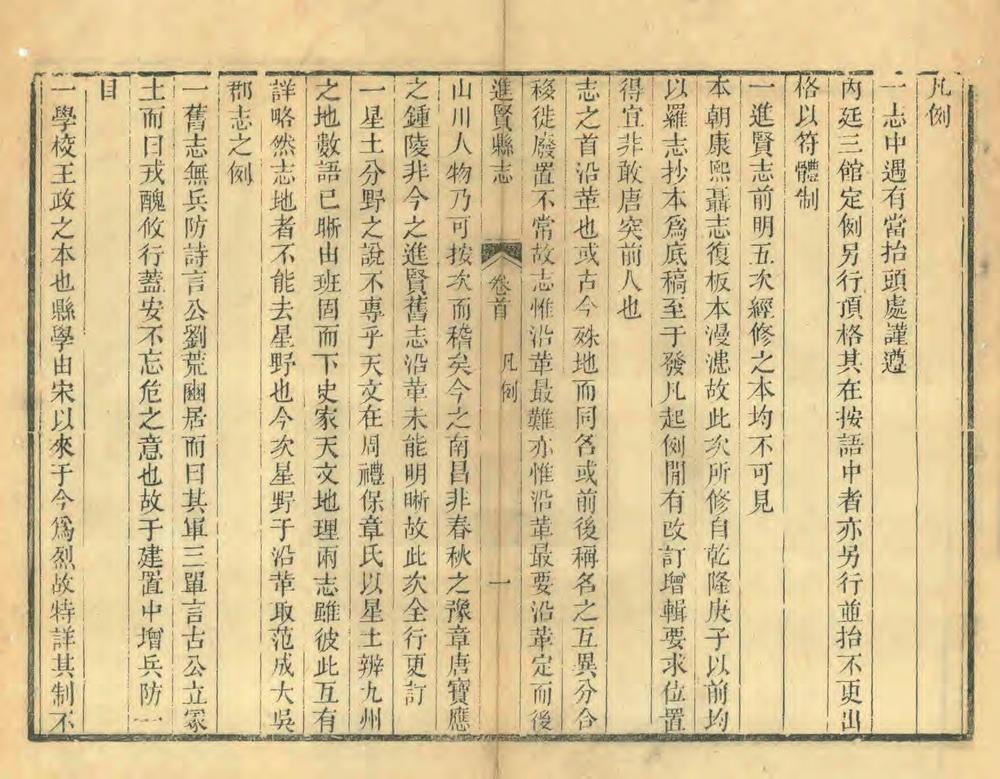 凡例
一志中遇有當抬頭處謹遵
內廷三館定例另行頂格其在按語中者亦另行並抬不更出
格以符體制
一進賢志前明五次經修之本均不可見
本朝康熙聶志復板本漫漶故此次所修自乾隆庚子以前均
以羅志抄本爲底稿至于發凡起例間有改訂增輯要求位置
得宜非敢唐突前人也
志之首沿革也或古今殊地而同名或前後稱名之互異分合
移徙廢置不常故志惟沿革最難亦惟沿革最要沿革定而後
進賢縣志 卷首 凡例 一
山川人物乃可按次而稽矣今之南昌非春秋之豫章唐寶應
之鍾陵非今之進賢舊志沿革未能明晰故此次全行更訂
一星土分野之說不專乎天文在周禮保章氏以星土辨九州
之地數語已晰由班固而下史家天文地理兩志雖彼此互有
詳略然志地者不能去星野也今次星野于沿革取范成大吳
郡志之例
一舊志無兵防詩言公劉荒豳居而曰其軍三單言古公立冢
土而曰戎醜攸行蓋安不忘危之意也故于建置中增兵防一
目
一學校王政之本也縣學由宋以來于今爲烈故特詳其制不